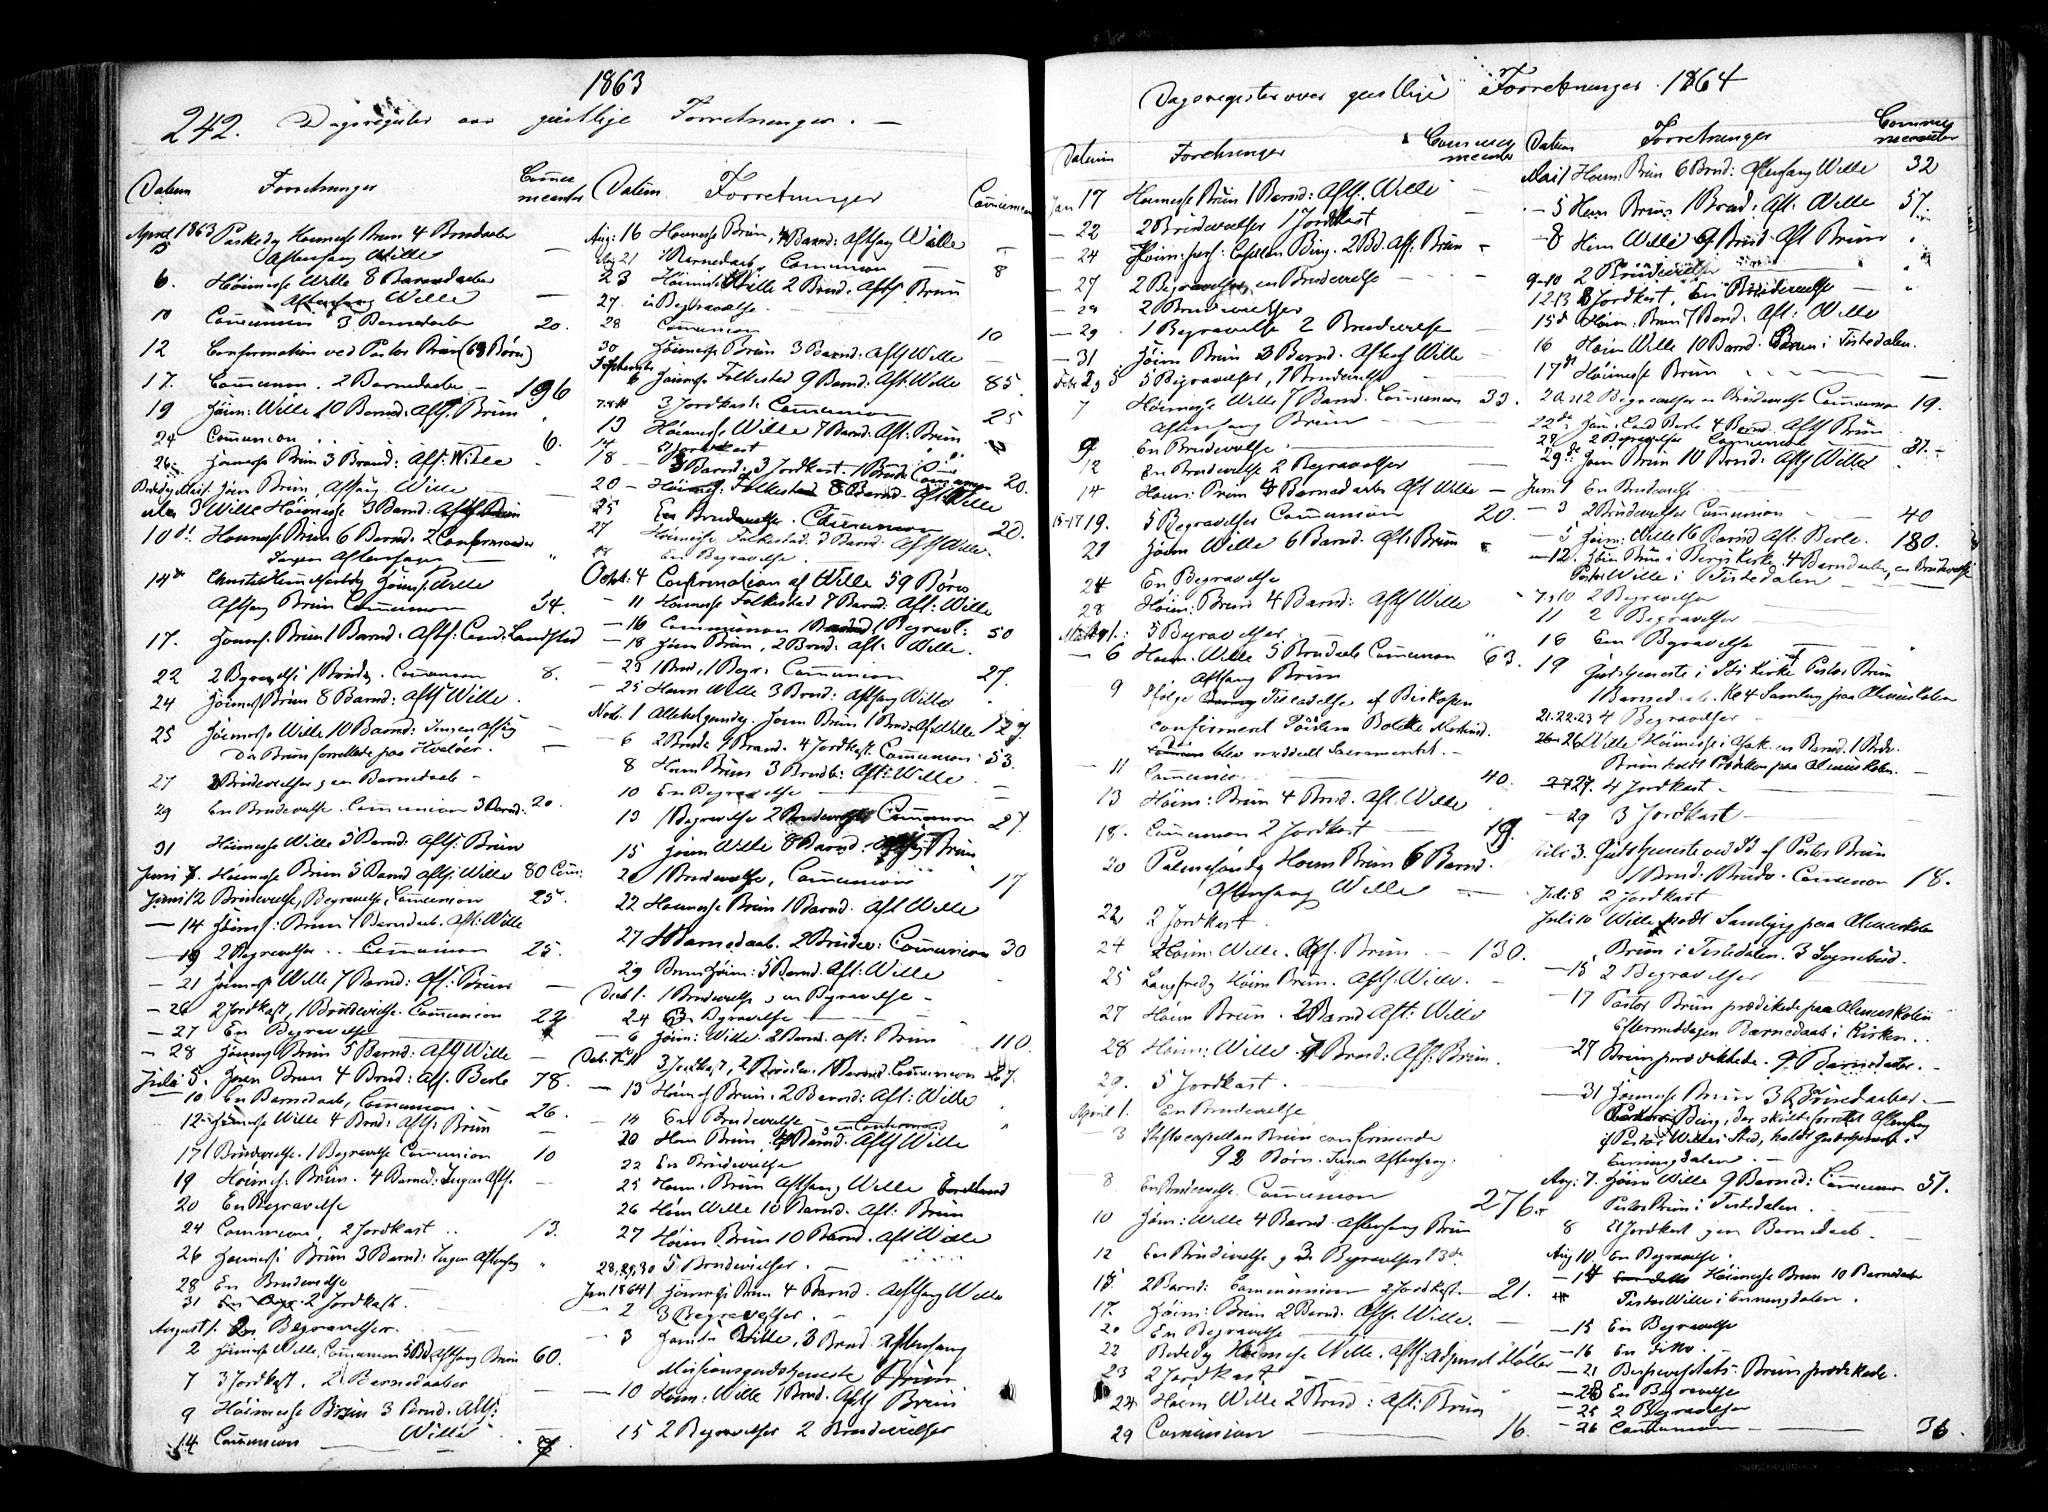 1863
242. Dagsregister over geistlige Forretninger. —
Datum Forretninger Communicanter
April 1863 Paaskedag Høimesse Brun 4 Barnedaaber
5 Aftensang Wille —
6. Høimesse Wille 8 Barnedaaber
Aftensang Wille —
10 Communion 3 Barnedaaber 20.
12 Confirmation ved Pastor Brun (69 Børn)
17. Communion. 2 Barnedaaber — 196
19 Høim: Wille 10 Barned: Afts. Brun
24 Communion 6.
26 Høimesse Brun 3 Barnd: Aft: Wille
Bededag Mai 1. Høim Brun, Aftsang Wille
3 Wille Høimesse 3 Barnd: Afts Brun
10 Høimesse Brun 6 Barnd. 2 Confirmander
Ingen Aftensang
14de Christi Himmelfartsdag Høimesse Wille
Aftsang Brun Communion 54.
17. Høimes. Brun 1 Barnd. Afts: Cand: Landstad
22 2 Begravelse 1 Brudev. Communion 8.
24 Høimes Brun 8 Barnd: Afts Wille
25 Høimesse Wille 10 Barnd: Ingen Aftsang
Da Brun forrettede paa Hvaløer. —
27 3 Brudevielser, en Barnedaab —
29 En Brudevielse. Communion 3 Barnd. 20.
31 Høimesse Wille 3 Barnd. Afts: Brun
Juni 7. Høimesse Brun 5 Barnd Afts. Wille 80 Com:
Juni 12 Brudevielse, Begravelse, Communion 25.
— 14 Høimes: Brun 7 Barnedaab. Aft: Wille
— 19 2 Begravelser .. Communion 25.
— 21 Høimesse Wille 7 Barnd: Aft: Brun —
— 26 2 Jordkast, 1 Brudevielse. Communion 22
— 27 En Begravelse
— 28 Høimes Brun 5 Barnd: Afts Wille —
Juli 5. Høim Brun 4 Brnd: Aft. Berle 78.
10 En Barnedaab, Communion 26.
12 Høimesse Wille 4 Brnd: Afts: Brun —
17 1 Brudevielse. 1 Begravelse Communion 10
19 Høimes: Brun. 4 Barned: Ingen Afts. —
20 En Begravelse
24 Communion, 2 Jordkast .. 13.
26 Høimesse Brun 3 Barnd: Ingen Aftensang
28 En Brudevielse
31 2 Jordkast.
August 1. En Begravelser. —
2 Høimesse Wille, Communion 5 Bd, Aftsang Brun 60.
7 3 Jordkast. 2 Barnedaaber —
9 Høimesse Brun 3 Barnd. Afts:
Wille
14 Communion — 7.
Datum Forretninger Communican
Aug: 16 Høimesse Brun, 4 Barnd: Aftsang Wille —
Aug 21 1 Barnedaab, Communion 8
23 Høimesse Wille 2 Brnd. Afts Brun
27. en Begravelse.
28 Communion 10
30 Høimesse Brun 3 Barnd: Afts Wille —
September
6 Høimesse Folkestad 9 Barnd. Aft: Wille 85.
3 Jordkast. Communion 25
13 Høimesse Wille 7 Barnd. Aft: Brun
14 Jordkast
18 — 3 Barnd. 3 Jordkast. 1 Brude Communion 20.
20 — Høimes: Folkestad 8 Barnd. Aft: Wille
25 En Brudevielse. Communion 20.
27 Høimesse Folkestad. 3 Barnd: Afts Wille.
En Begravelse
Octb: 4 Confirmation af Wille 59 Børn
— 11 Høimesse Folkestad 7 Barnd: Aft: Wille
— 16 Communion 1 Barnd 1 Begravl: 50
— 18 Høim Brun, 2 Brnd: Aft: Wille.
— 23 1 Brnd, 1 Begr: Communion 27.
— 25 Høim Wille 3 Brnd: Aftsang Wille
Novb. 1 Allehelgensdag. Høim Brun 1 Brnd Aft Wille 129
— 6 2 Brude 7 Brand. 4 Jordkast. Communion 53.
8 Høim Brun 3 Brndb: Aft: Wille
10 En Begravelse
13 1 Begravelse 2 Brudevielser Communion 27.
15 Høim Wille 8 Barnd. Aftsg Brun
20 1 Brudevielse, Communion 17
22 Høimesse Brun 1 Barnd. Aft Wille
27 1 Barnedaab. 2 Brudev: Communion 30
29 Brun Høim: 5 Barnd. Aft: Wille
Decb 1. 1 Brudevielse, en Begravelse —
24 En Begravelse
— 6 Høim: Wille 2 Barnd. Aft: Brun 110.
Decb. 3 Jordkast, 2 Brudev. 1 Barnd. Communion 27.
— 13 Høimes Brun. 2 Barnd: Aft: Wille
— 14 En Brudevielse
en Confirmand
20 Høim Brun 4 Barnd. Afts Wille
22 En Brudevielse
25 Høim. Brun Aftsang Wille
26 Høim Wille 10 Barnd. Aft: Brun
27 Høim Brun 10 Barnd. Aft Wille
28, 29, 30 5 Brudevielser. —
Jan 1864 1 Høimesse Brun 4 Barnd. Aftsang Wille
— 2 3 Begravelser. —
— 3 Høimesse Wille, 3 Brnd Aftensang
Missionsgudstjeneste Brun
— 10 Høim: Wille 1 Brnd. Afts Brun
15 2 Begravelser 2 Brudevielser
Dagsregister over geistlige Forretninger 1864
Datum Forretninger Communicanter
Jan 17 Høimesse Brun 1 Barnd: Afts. Wille —
— 22 2 Brudevielser 1 Jordkast
— 24 Høim: pers: Capellan Bing. 2 Bd. Aft: Brun —
— 27 2 Begravelser, en Brudevielse
2 Brudevielser
— 29 1 Begravelse 2 Brudevielser —
— 31 Høim Brun 3 Barnd. Aftens Wille —
Febr 2 og 5 5 Begravelser, 1 Brudevielse
7 Høimesse Wille 7 Barnd. Communion 33.
Aftensang Brun
9 En Brudevielse
12 En Brudevielse 2 Begravelser
14 Høim: Brun 4 Barnedaaber Aft Wille —
15-17 19. 5 Begravelser Communion 20.
21 Høim Wille 6 Barnd. Aft: Brun
24 En Begravelse
28 Høim: Brun 4 Barnd: Afts Wille
Marts 1.: 5 Begravelser
— 6 Høim: Wille 5 Brudeb Communion 63.
Aftsang Brun
9 Ifølge Tilladelse af Biskopen
confirment
blev meddelt Sacramentet. —
— 11 Communion 40.
13 Høim: Brun 4 Brnd. Aft. Wille
18. Communion 2 Jordkast 19.
20 Palmesøndag Høim Brun 6 Barnd.
Aftensang Wille —
22 2 Jordkast.
24 Høim: Wille. Aft. Brun — 130.
25 Langfredag Høim Brun. Afts. Wille. —
27 Høim Brun. 2 Barnd Aft: Wille
28 Høim: Wille. 7 Brnd. Aft: Brun.
29. 5 Jordkast.
April 1. En Brudevielse
— 3 Stiftscapellan Brun confirmerede
92 Børn. Ingen Aftensang.
8 En Brudevielse. Communion 276.
10 Høim: Wille 4 Barnd. Aftensang Brun
12 En Brudevielse, 3 Begravelser 13de
15 2 Barnd: Communion 2 Jordkast — 21.
17. Høim: Brun 2 Barnd. Aft: Wille. —
20 En Begravelse
22 Bededag Høimesse Wille. Afts: Adjunct Møller
23 2 Jordkast
24 Høim Wille 2 Brnd: Aft: Brun
29 Communion 16.
Datum Forretninger Communicanter
Mai 1 Høim: Brun 6 Brnd: Aftensang Wille 32
— 5 Høim Brun 1 Brnd. Aft. Wille 57.
— 8 Høim Wille 9 Brnd Aft Brun
9-10 2 Brudevielser
12-13 3 Jordkast. En Brudevielse —
15de Høim: Brun 7 Barnd. Aft: Wille
16 Høim Wille 10 Barnd. Brun i Tistedalen.
17de Høimesse Brun —
20, 21 2 Begravelser en Brudevielse Communion 19.
22de Høim: Cand Berle 4 Barnd. Afts Brun
2 Begravelser Communion 31.
29de Høim Brun 10 Brnd: Afts Wille
Juni 1 En Brudevielse
— 3 2 Brudevielser Communion 40
— 5 Høim: Wille 16 Barnd Aft. Berle. 180.
— 12. Høim Brun i Bergs Kirke. 4 Barnedaaber, en Brudevielse
Pastor Wille i Tistedalen —
7, 10 2 Begravelser
11 2 Begravelser
16 En Begravelse
19 Gudstjeneste i Idd Kirke af Pastor Brun
1 Barned. Kl 4 Samling paa Almueskolen
21. 22. 23 4 Begravelser —
26 Wille Høimesse i en Barnd. 1 Brdv.
Brun holdt Prædiken paa Almueskolen. —
27. 4 Jordkast —
— 29 3 Jordkast —
Juli 3. Gudstjeneste ved Id af Pastor Brun
1 Brnd: Brudv. Communion 18.
Juli 8 2 Jordkast
Juli 10 Wille holdt Samling paa Almueskolen
Brun i Tistedalen. 3 Sognebud.
— 15 2 Begravelser
— 17 Pastor Brun prædikede paa Almueskolen
Eftermiddagen Barnedaab i Kirken.
— 24 Brun prædikede. 9 Barnedaaber. —
— 31 Høimesse Brun 3 Barnedaaber. —
Bing, der skulde forrettet Aftensang
i Pastor Willes Sted, holdt Gudstjeneste i
Enningdalen. —
Aug: 7. Høim Wille 9 Barned: Communion 37.
Pastor Brun i Tistedalen.
8 Et Jordkast, en Barnedaab. —
Aug 10. En Begravelse.
— 14 Høimesse Brun 10 Barnedaab
Pastor Wille i Enningdalen.
— 15 En Begravelse
— 16 En dito. —
— 21 Brun prædikede.
— 23 En Begravelse
— 25 2 Begravelser
— 26 Communion — 36.